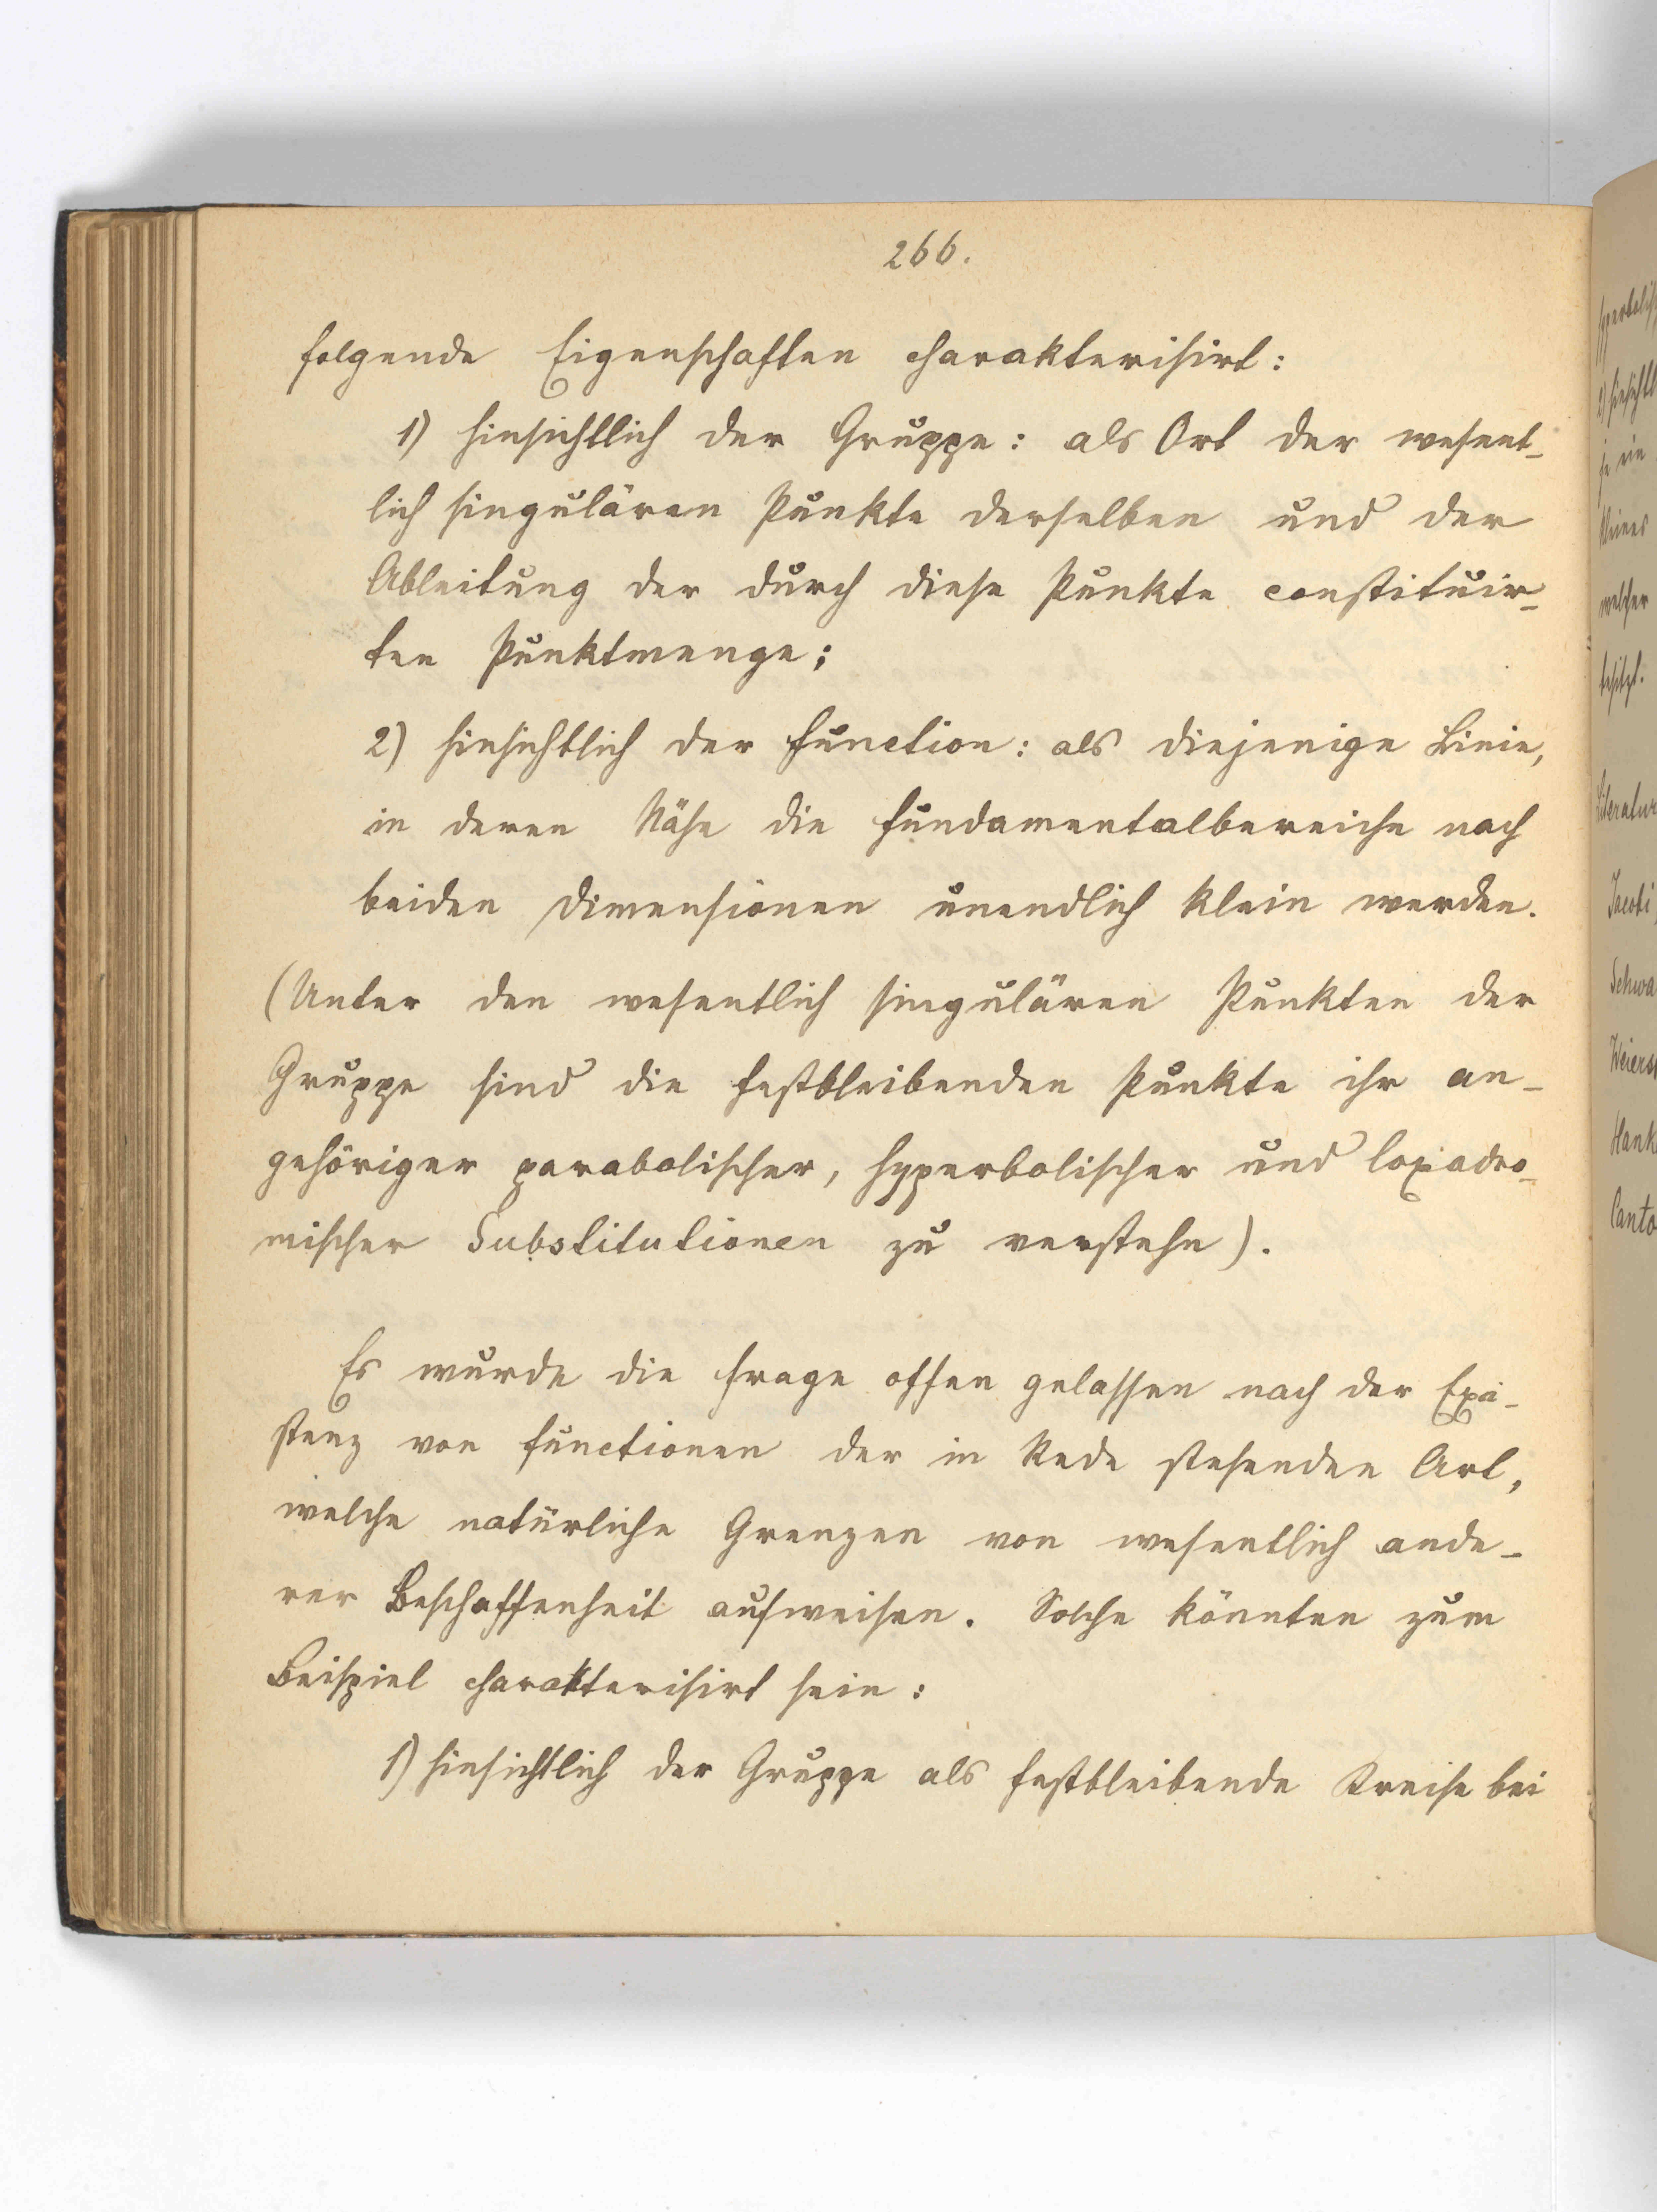 266.
folgende Eigenschaften charakterisirt:
1) hinsichtlich der Gruppe: als Ort der wesent-
lich singulären Punkte derselben und der
Ableitung der durch diese Punkte constituir-
ten Punktmenge;
2) hinsichtlich der Function: als diejenige Linie,
in deren Nähe die Fundamentalbereiche nach
beiden Dimensionen unendlich klein werden.
(Unter den wesentlich singulären Punkten der
Gruppe sind die festbleibenden Punkte ihr an-
gehöriger parabolischer, hyperbolischer und loxadro-
mischer Substitutionen zu verstehn).
Es wurde die Frage offen gelassen nach der Exi-
stenz von Functionen der in Rede stehenden Art,
welche natürliche Grenzen von wesentlich ande-
rer Beschaffenheit aufweisen. Solche könnten zum
Beispiel charakterisirt sein:
1) hinsichtlich der Gruppe als festbleibende Kreise bei
welcher
besitzt.
Literatur
Jacobi,